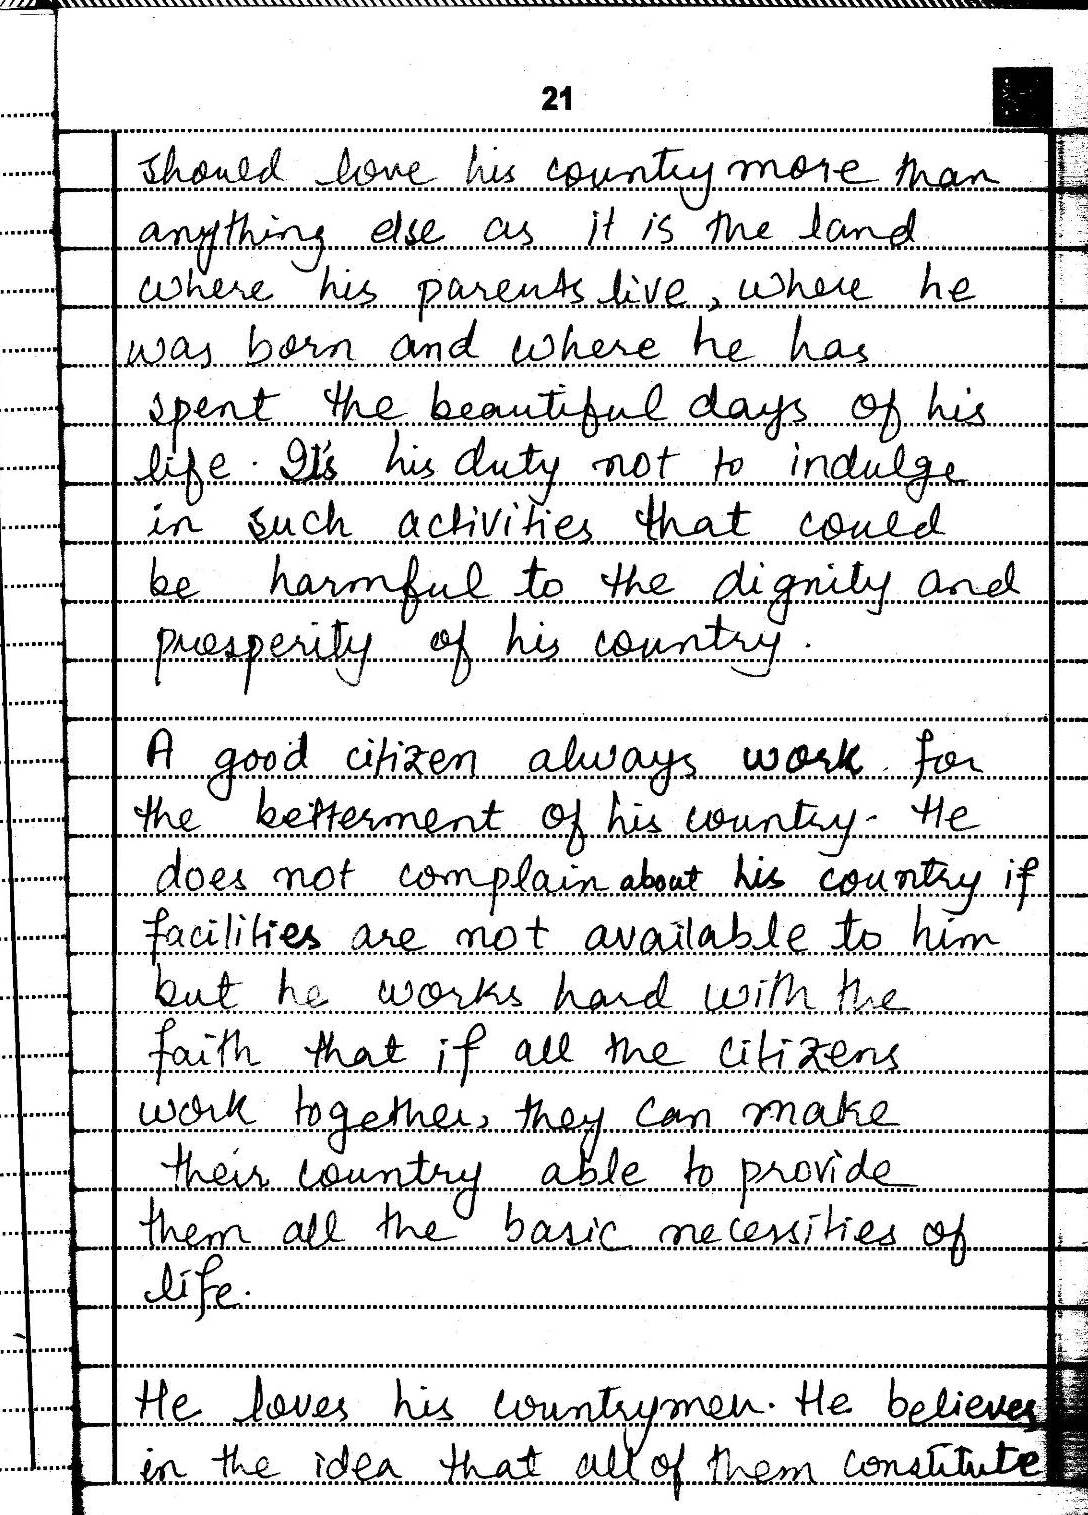 21
should love his country more than
anything else as it is the land
where his parents live, where he
was born and where he has
spent the beautiful days of his
life. It's his duty not to indulge
in such activities that could
be harmful to the dignity and
prosperity of his country.
A good citizen always work for
the betterment of his country. He
does not complain about his country if
facilities are not available to him
but he works hard with the
faith that if all the citizens
work together, they can make
their country able to provide
them all the basic necessities of
life.
He loves his countrymen. He believes
in the idea that all of them constitute